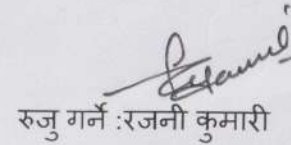 रुजु गर्ने :रजनी कुमारी